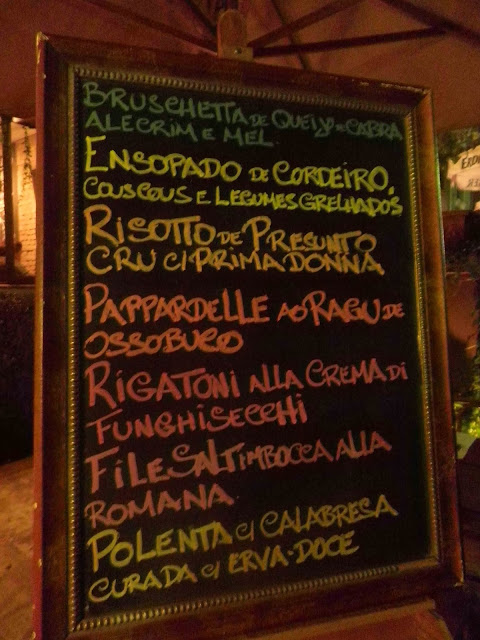 BRUSCHETTA DE QUEIJO CABRA
ALECRIM E MEL
ENSOPADO DE CORDEIRO,
COUSCOUS E LEGUMES GRELHADOS
RISOTTO DE PRESUNTO
CRU C/ PRIMA DONNA
PAPPARDELLE AO RAGU DE
OSSOBUCO
RIGATONI ALLA CREMA DI
FUNGHI SECCHI
FILE SALTIMBOCCA ALLA
ROMANA
POLENTA C/ CALABRESA
CURADA C/ ERVA-DOCE